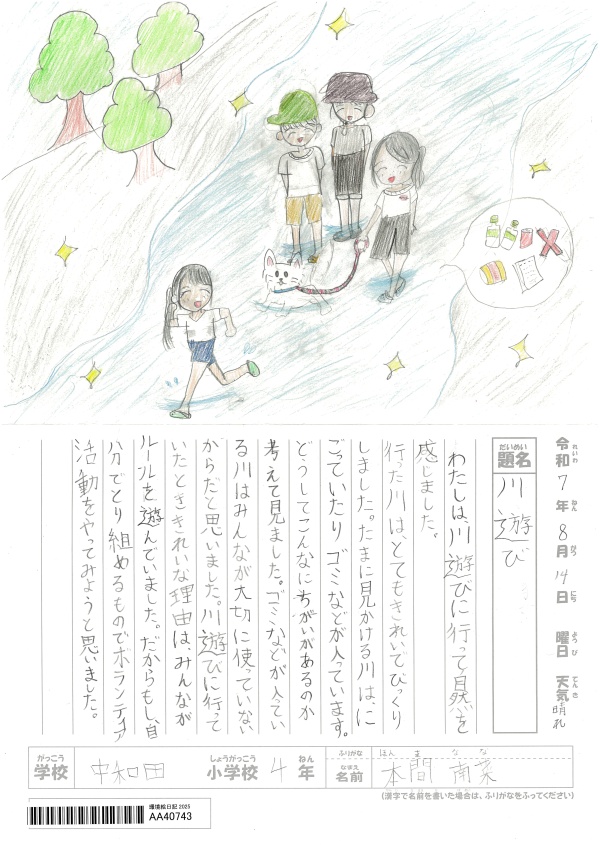 令和 7年 8月 14日 曜日 天気 晴れ
れいわ ねん がつ にち ようび てんき
だいめい
題名
川遊び
わたしは、川遊びに行って自然を
感じました。
行った川は、とてもきれいでびっくり
しました。たまに見かける川は、に
ごっていたりゴミなどが入っています。
どうしてこんなにちがいがあるのか
考えて見ました。ゴミなどが入ってい
る川はみんなが大切に使っていない
からだと思いました。川遊びに行って
いたとききれいな理由は、みんなが
ルールを遊んでいました。だからもし、自
分でとり組めるものでボランティア
活動をやってみようと思いました。
がっこう
学校
中和田
しょうがっこう
小学校
4
ねん
年
ふりがな
ほんま なな
なまえ
名前
本間 南菜
(漢字で名前を書いた場合は、ふりがなをふってください)
環境絵日記 2025
AA40743